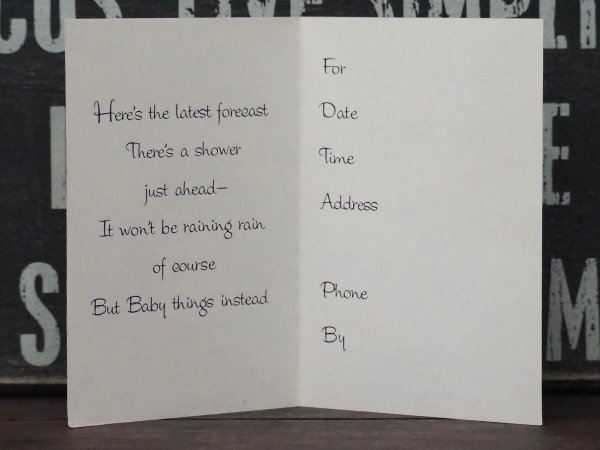 Here's the latest forecast
There's a shower
just ahead—
It won't be raining rain
of course
But Baby things instead
For
Date
Time
Address
Phone
By